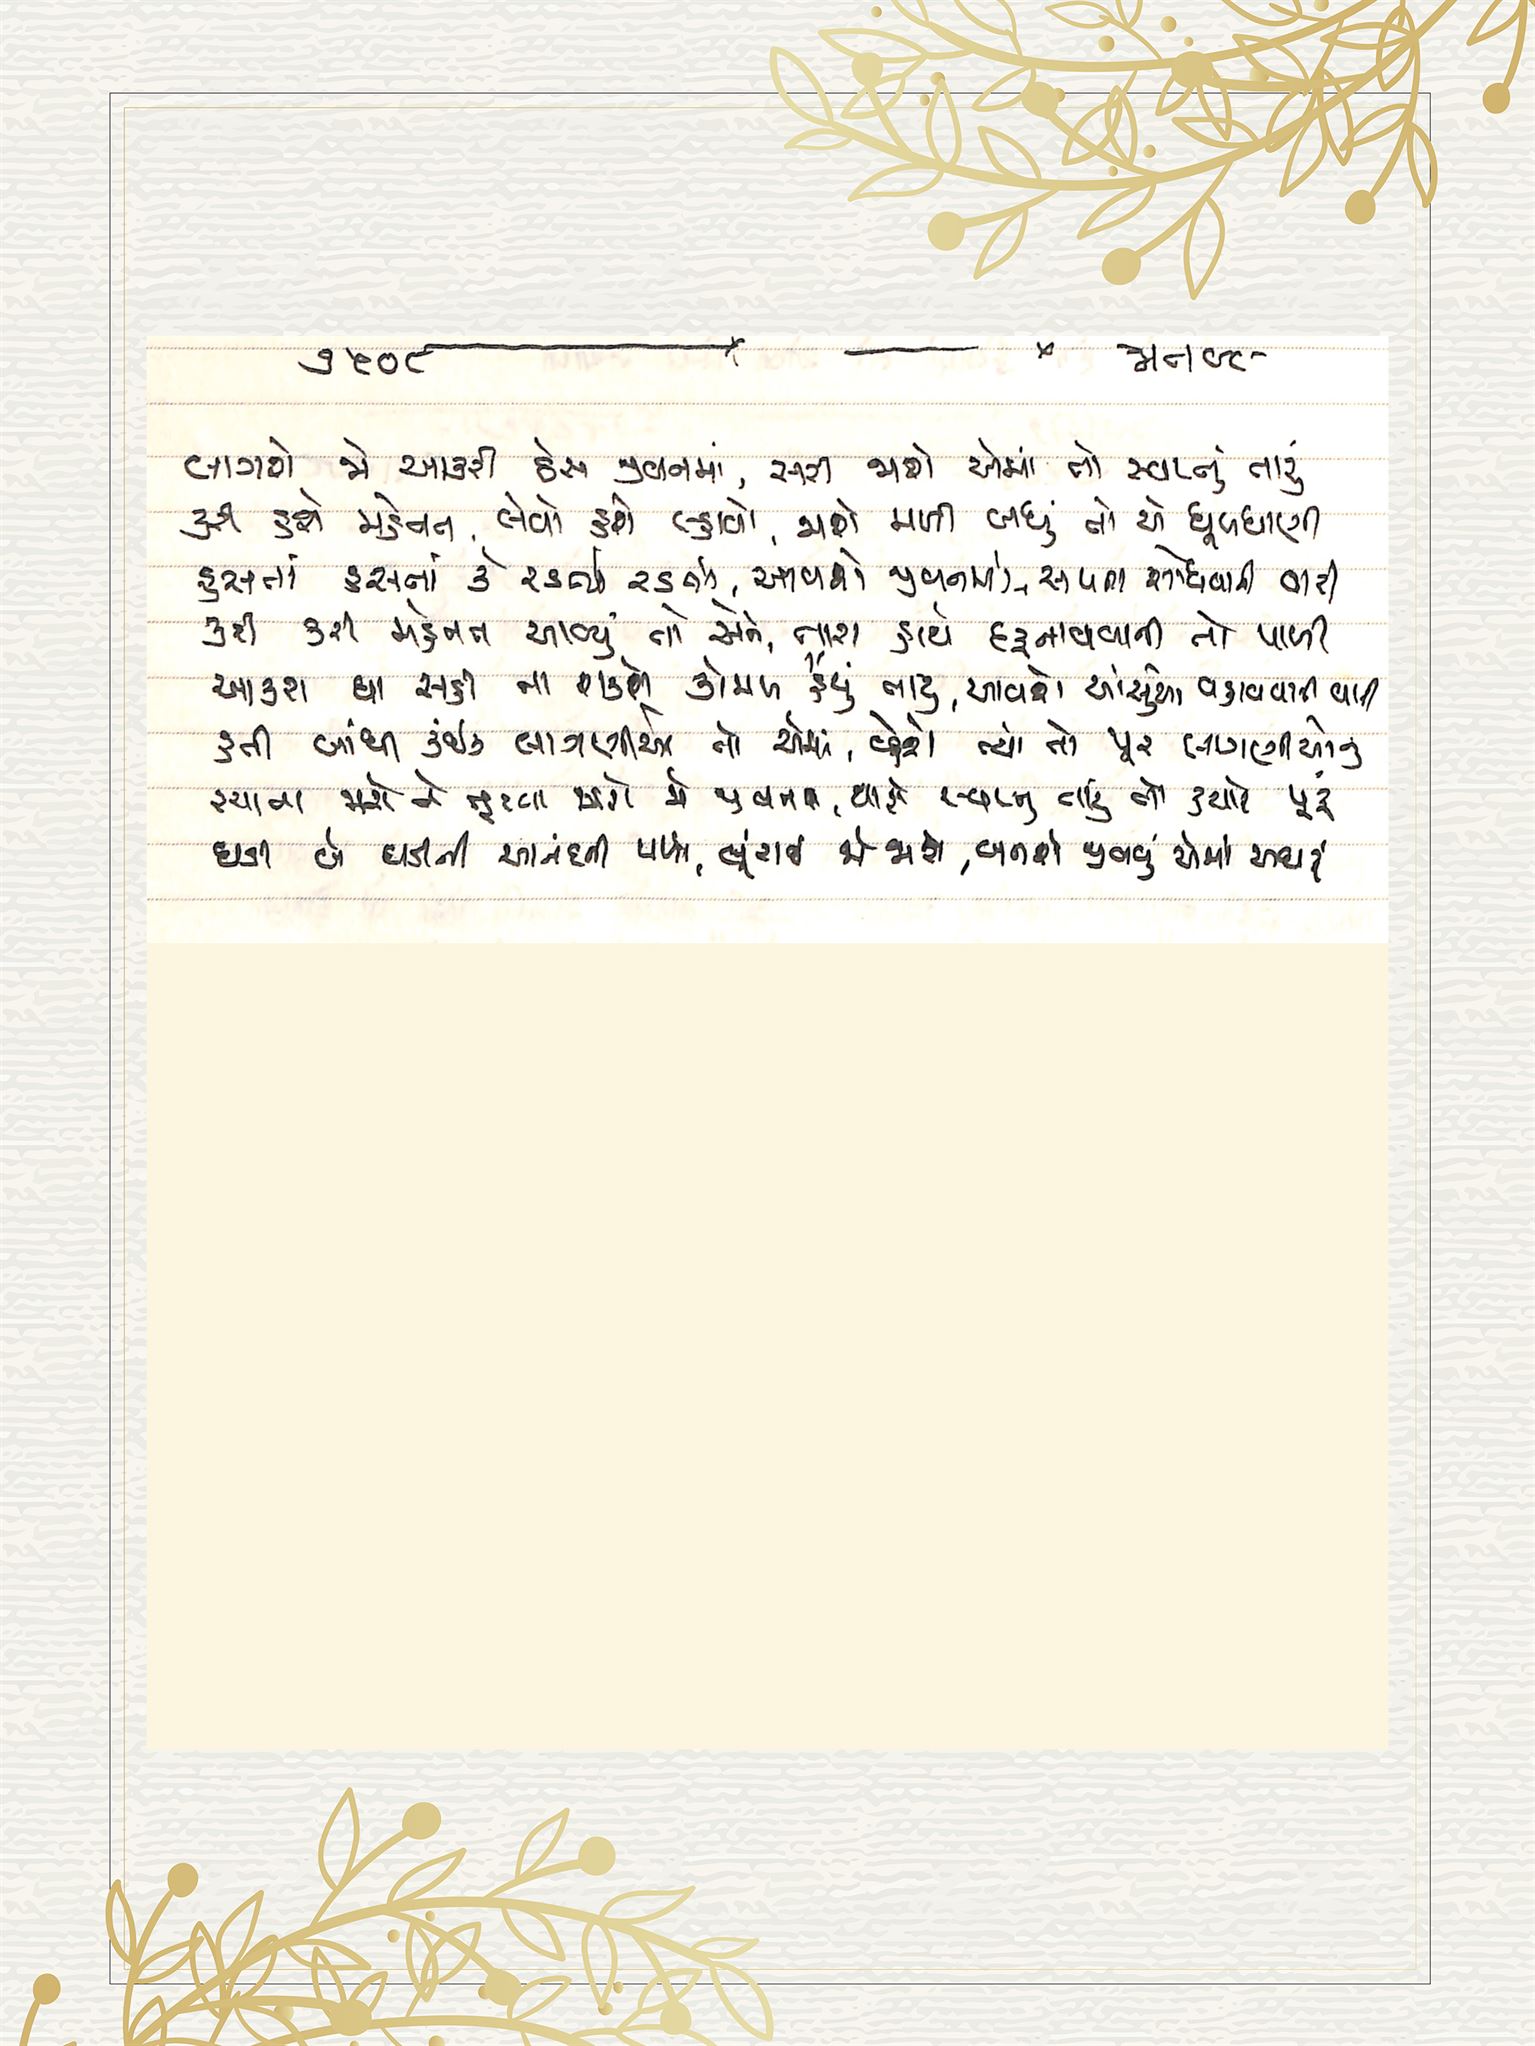 ૭૫૦૯ મનન
લાગશે જો આકરી ઠેસ જીવનમાં, સરી જાશે એમાં તો સ્વપ્નું તારું
કરી હશે મહેનત, લેવો હશે લ્હાવો, જાશે મળી બધું તો એ ધૂળધાણી
હસતાં હસતાં કે રડતાં રડતાં, આવશે જીવનમાં, સપના શોધવાની વારી
કરી કરી મહેનત આવ્યું તો એને, તારા હાથે દફનાવવાની તો પાળી
આકરા ઘા સહી ના શકશે કોમળ હૈયું તારું, આવશે આંસુઓ વહાવવાની વારી
હતી બાંધી કંઈક લાગણીઓ તો એમાં, વ્હેશે ત્યાં તો પૂર લાગણીઓનું
રચાતા જાશે ને તૂટતા જાશે જો જીવનમાં, થાશે સ્વપ્નું તારું તો ક્યારે પૂરું
ઘડી બે ઘડીની આનંદની પળો, ભૂંસાઈ જો જાશે, બનશે જીવવું એમાં અઘરું